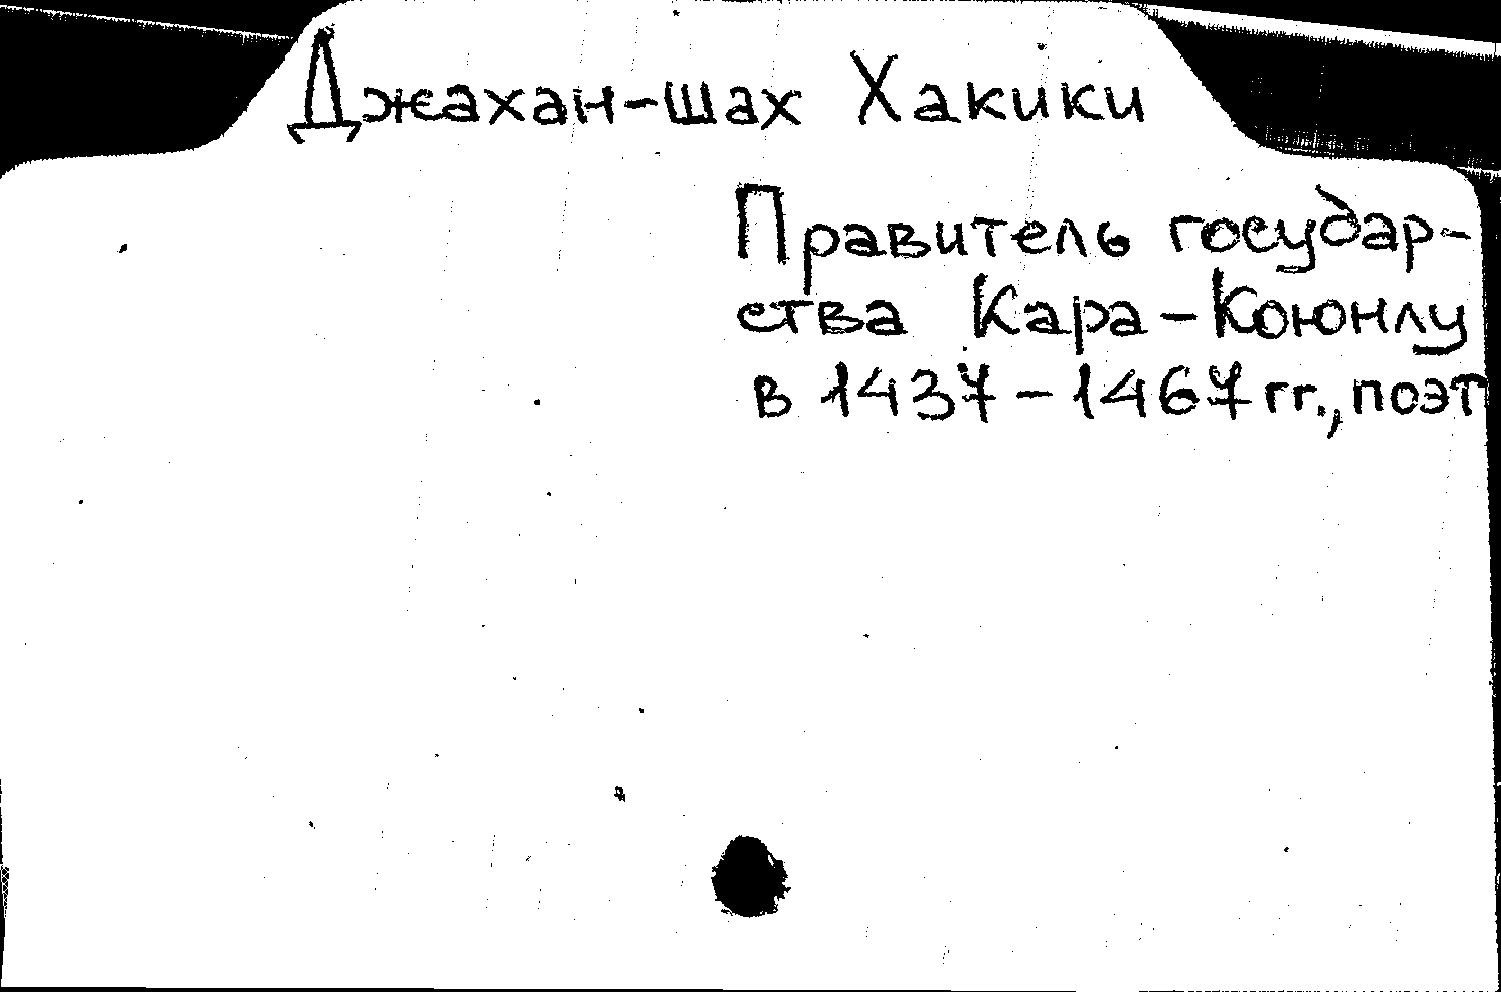 Джахан-шах Хакики
Правитель государ-
ства Кара-Коюнлу
в 1437-1467 гг., поэт